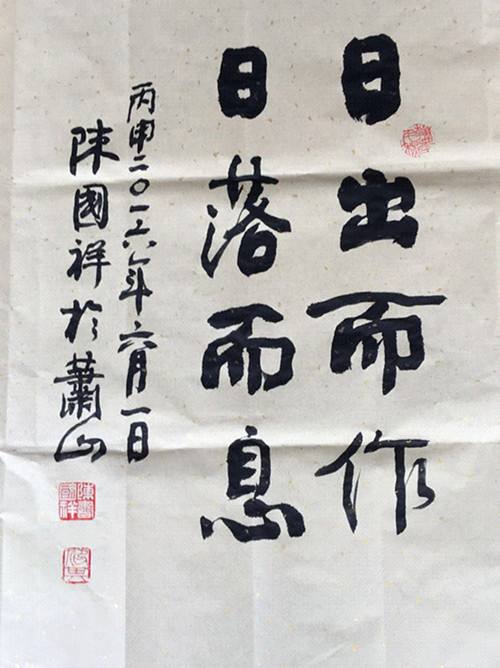 日出而作
日落而息
丙申二〇一六年六月一日
陳國祥於蕭山